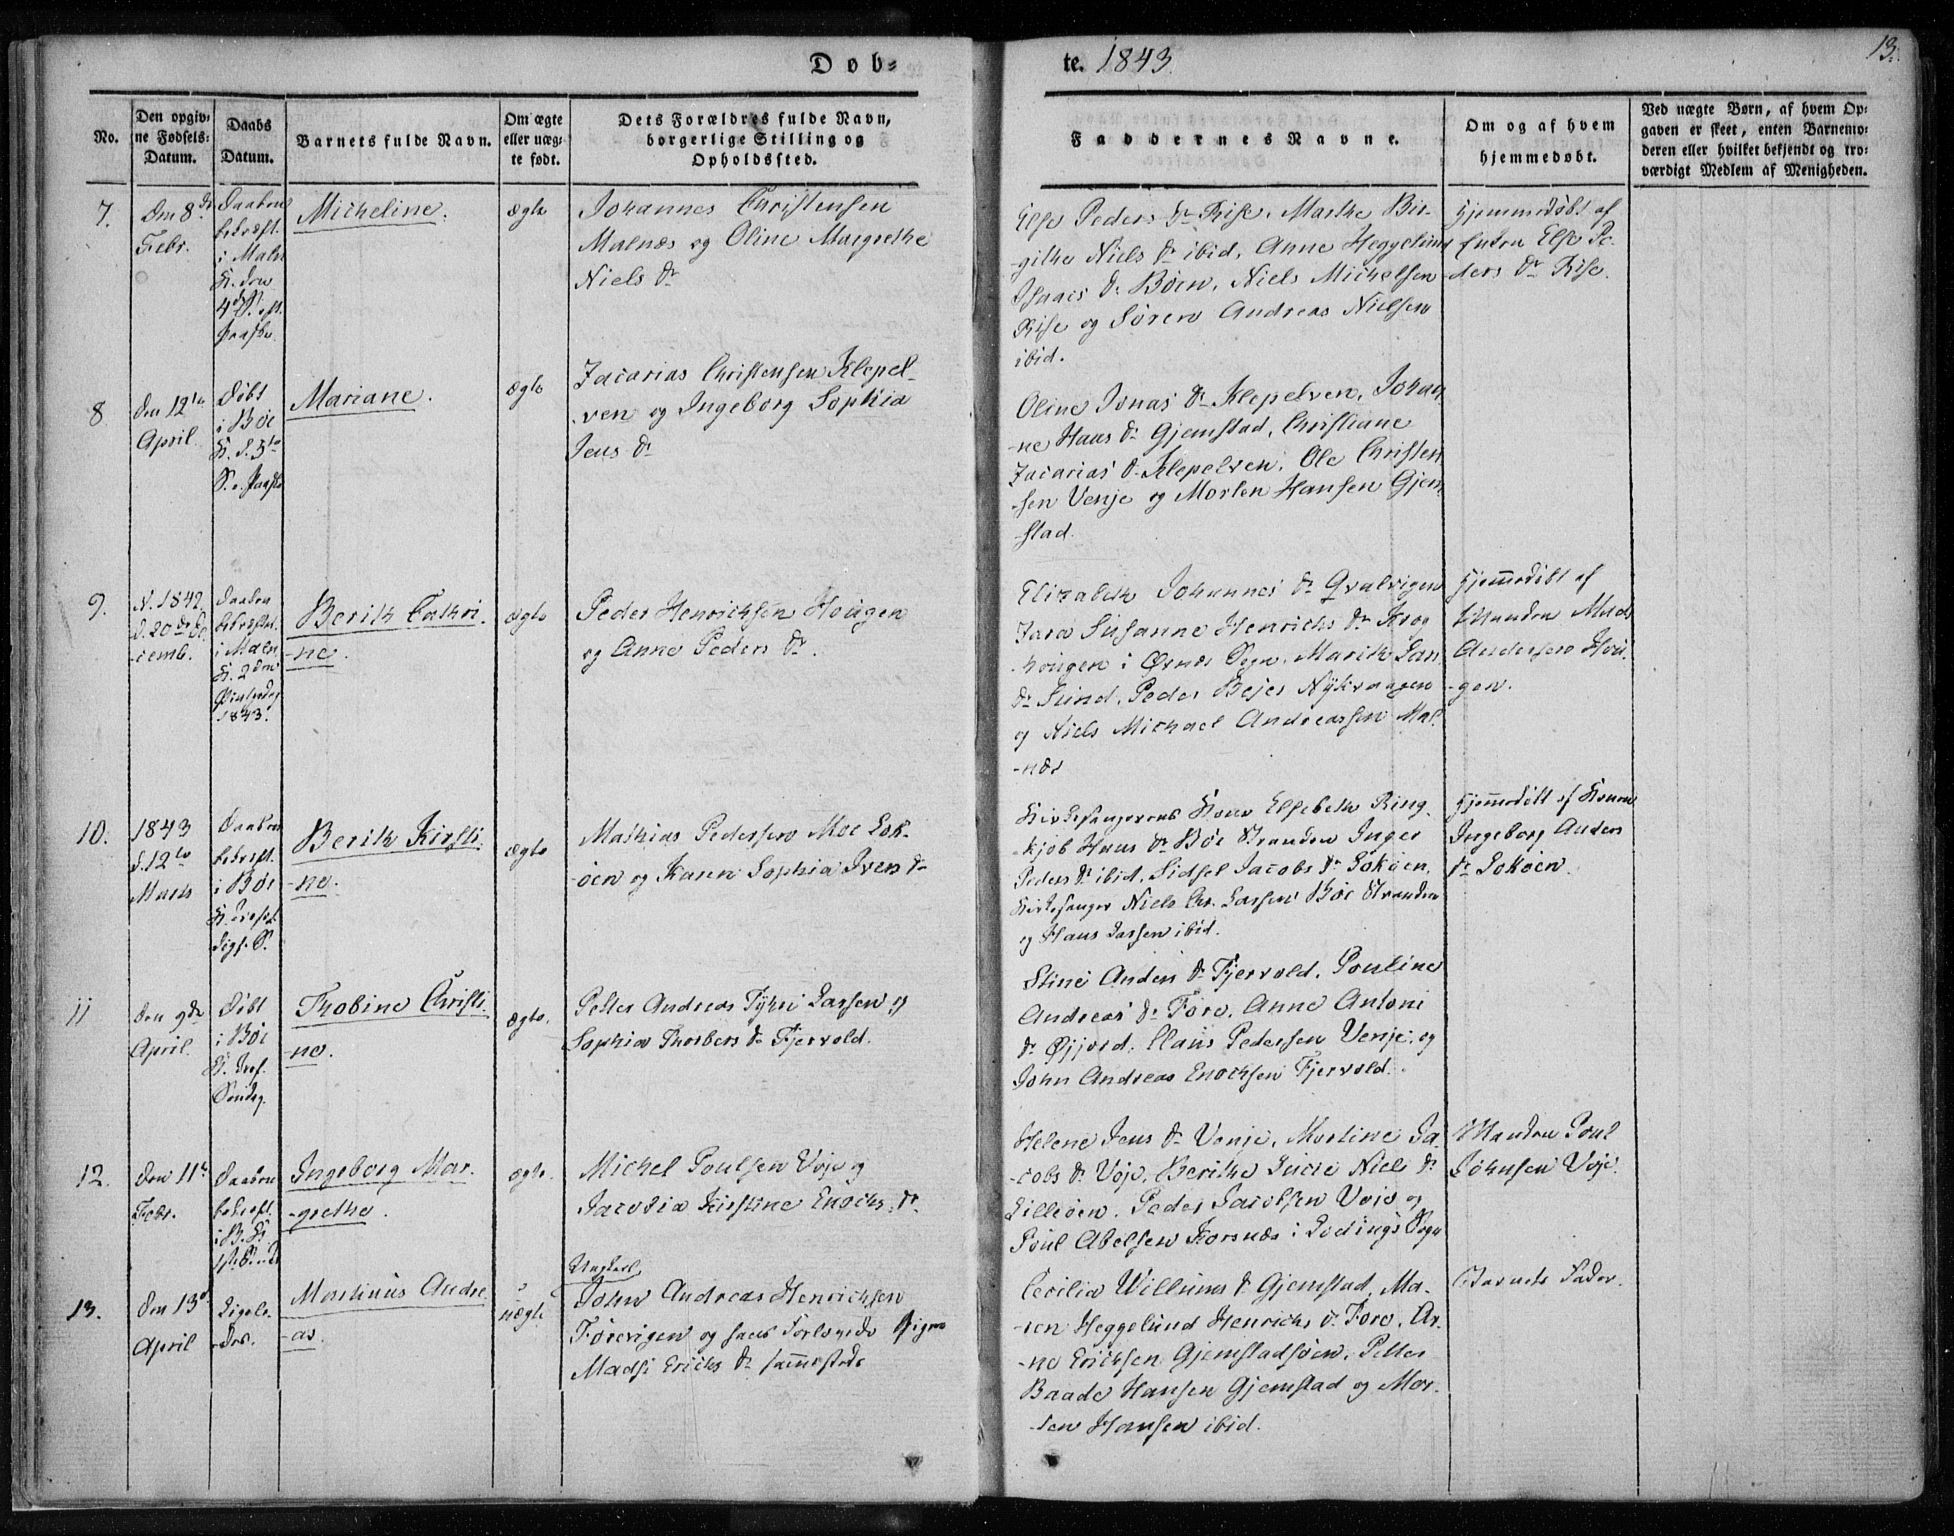 Døb-
te. 1843.
13.
No.
Den opgiv-
ne Fødsels-
Datum.
Daabs
Datum.
Barnets fulde Navn.
Om ægte
eller uæg-
te født.
Dets Forældres fulde Navn,
borgerlige Stilling og
Opholdssted.
Faddernes Navne.
Om og af hvem
hjemmedøbt.
Ved uægte Børn, af hvem Op-
gaven er skeet, enten Barnemo-
deren eller hvilket bekjendt og tro-
værdigt Medlem af Menigheden.
7.
Den 8de
Febr.
Daaben
bekræft.
i Maln.
K. den
4de S. eft.
Paaske
Micheline.
ægte
Johannes Christensen
Malnæs og Oline Margrethe
Niels Dr
Else Peders Dr Rise, Marthe Bir-
githe Niels Dr ibid, Anne Heggelund
Isaacs Dr Böen, Niels Michelsen
Rise og Sören Andreas Nielsen
ibid.
Hjemmedöbt af
Else Pe-
ders Dr Rise.
8
Den 12te
April.
Döbt
i Böe
K. d. 3die
S. e. Paaske
Mariane.
ægte
Zacarias Christensen Klepel-
ven og Ingeborg Sophia
Jens Dr
Oline Jonas Dr Klepelven, Johan-
ne Hans Dr Gjemstad, Christiane
Zacarias Dr Klepelven, Ole Christen-
sen Venje og Morten Hansen Gjem-
stad.
9.
N. 1842
d. 20de De-
cemb.
Daaben
bekræftet
i Maln.
K. 2den
Pintsedag
1843.
Berith Cathri-
-ne.
ægte
Peder Henrichsen Hougen
og Anne Peders Dr.
Elizabeth Johannes Dr Qvalvigen
Sara Susanne Henrichs Dr Krog
hougen i Ørnæs Sogn, Marith Lars
Dr Sund, Peder Bejer Nÿkvaagen
og Niels Michael Andreassen Mal-
-næs
Hjemmedöbt af
Manden Mads
Andersen Hou-
-gen.
10.
1843
d. 12te
Marts
Daaben
bekræft.
i Böe
K. Trefol-
digh. S.
Berith Kirsti-
-ne.
ægte
Mathias Pedersen Moe Gok-
-öen og Karen Sophia Ivers Dr
Kirkesangerens Kone Elsebeth Ring-
kjöb Hans Dr Böe Stranden Inger
Peders Dr ibid, Sidsel Jacobs Dr Gokøen,
Kirkesanger Niels Chr. Larsen Böe Stranden
og Hans Larsen ibid.
Hjemmedöbt af Konen
Ingeborg Anders
Dr Gokøen.
11
Den 9de
April.
Döbt
i Böe
K. Tref.
Söndag.
Thobine Christi-
-ne.
ægte.
Petter Andreas Tÿhn Larsen og
Sophia Thorbers Dr Fjervold.
Stine Anders Dr Fjervold, Pouline
Andreas Dr Fore, Anne Antoni
Dr Øijord, Claus Pedersen Venje, og
John Andreas Enochsen Fjervold.
12.
Den 11te
Febr.
Daaben
bekræft.
i B. K.
1ste S.
Ingeborg Mar-
-grethe.
ægte.
Michel Poulsen Vöje og
Jacobia Kirstine Enochs Dr
Helene Jens Dr Venje, Martine Ja-
-cobs Dr Vöje, Berithe Lucie Niels Dr
Lilleöen, Peder Jacobsen Vöje og
Poul Abelsen Korsnæs i Lödings Sogn
Manden Poul
Johnsen Vöje.
13.
Den 13de
April
Ligele-
-des.
Martinus Andre-
-as.
uægte
Ungkarl
John Andreas Henrichsen
Forevigen og hans Forlovede Pigen
Madsi Erichs Dr sammesteds
Cecilia Willums Dr Gjemstad, Ma-
-ren Heggelund Henrichs Dr Fore, Ar-
-ne Erichsen Gjemstadsöen, Petter
Baade Hansen Gjemstad og Mor-
-ten Hansen ibid.
Barnets Fader.